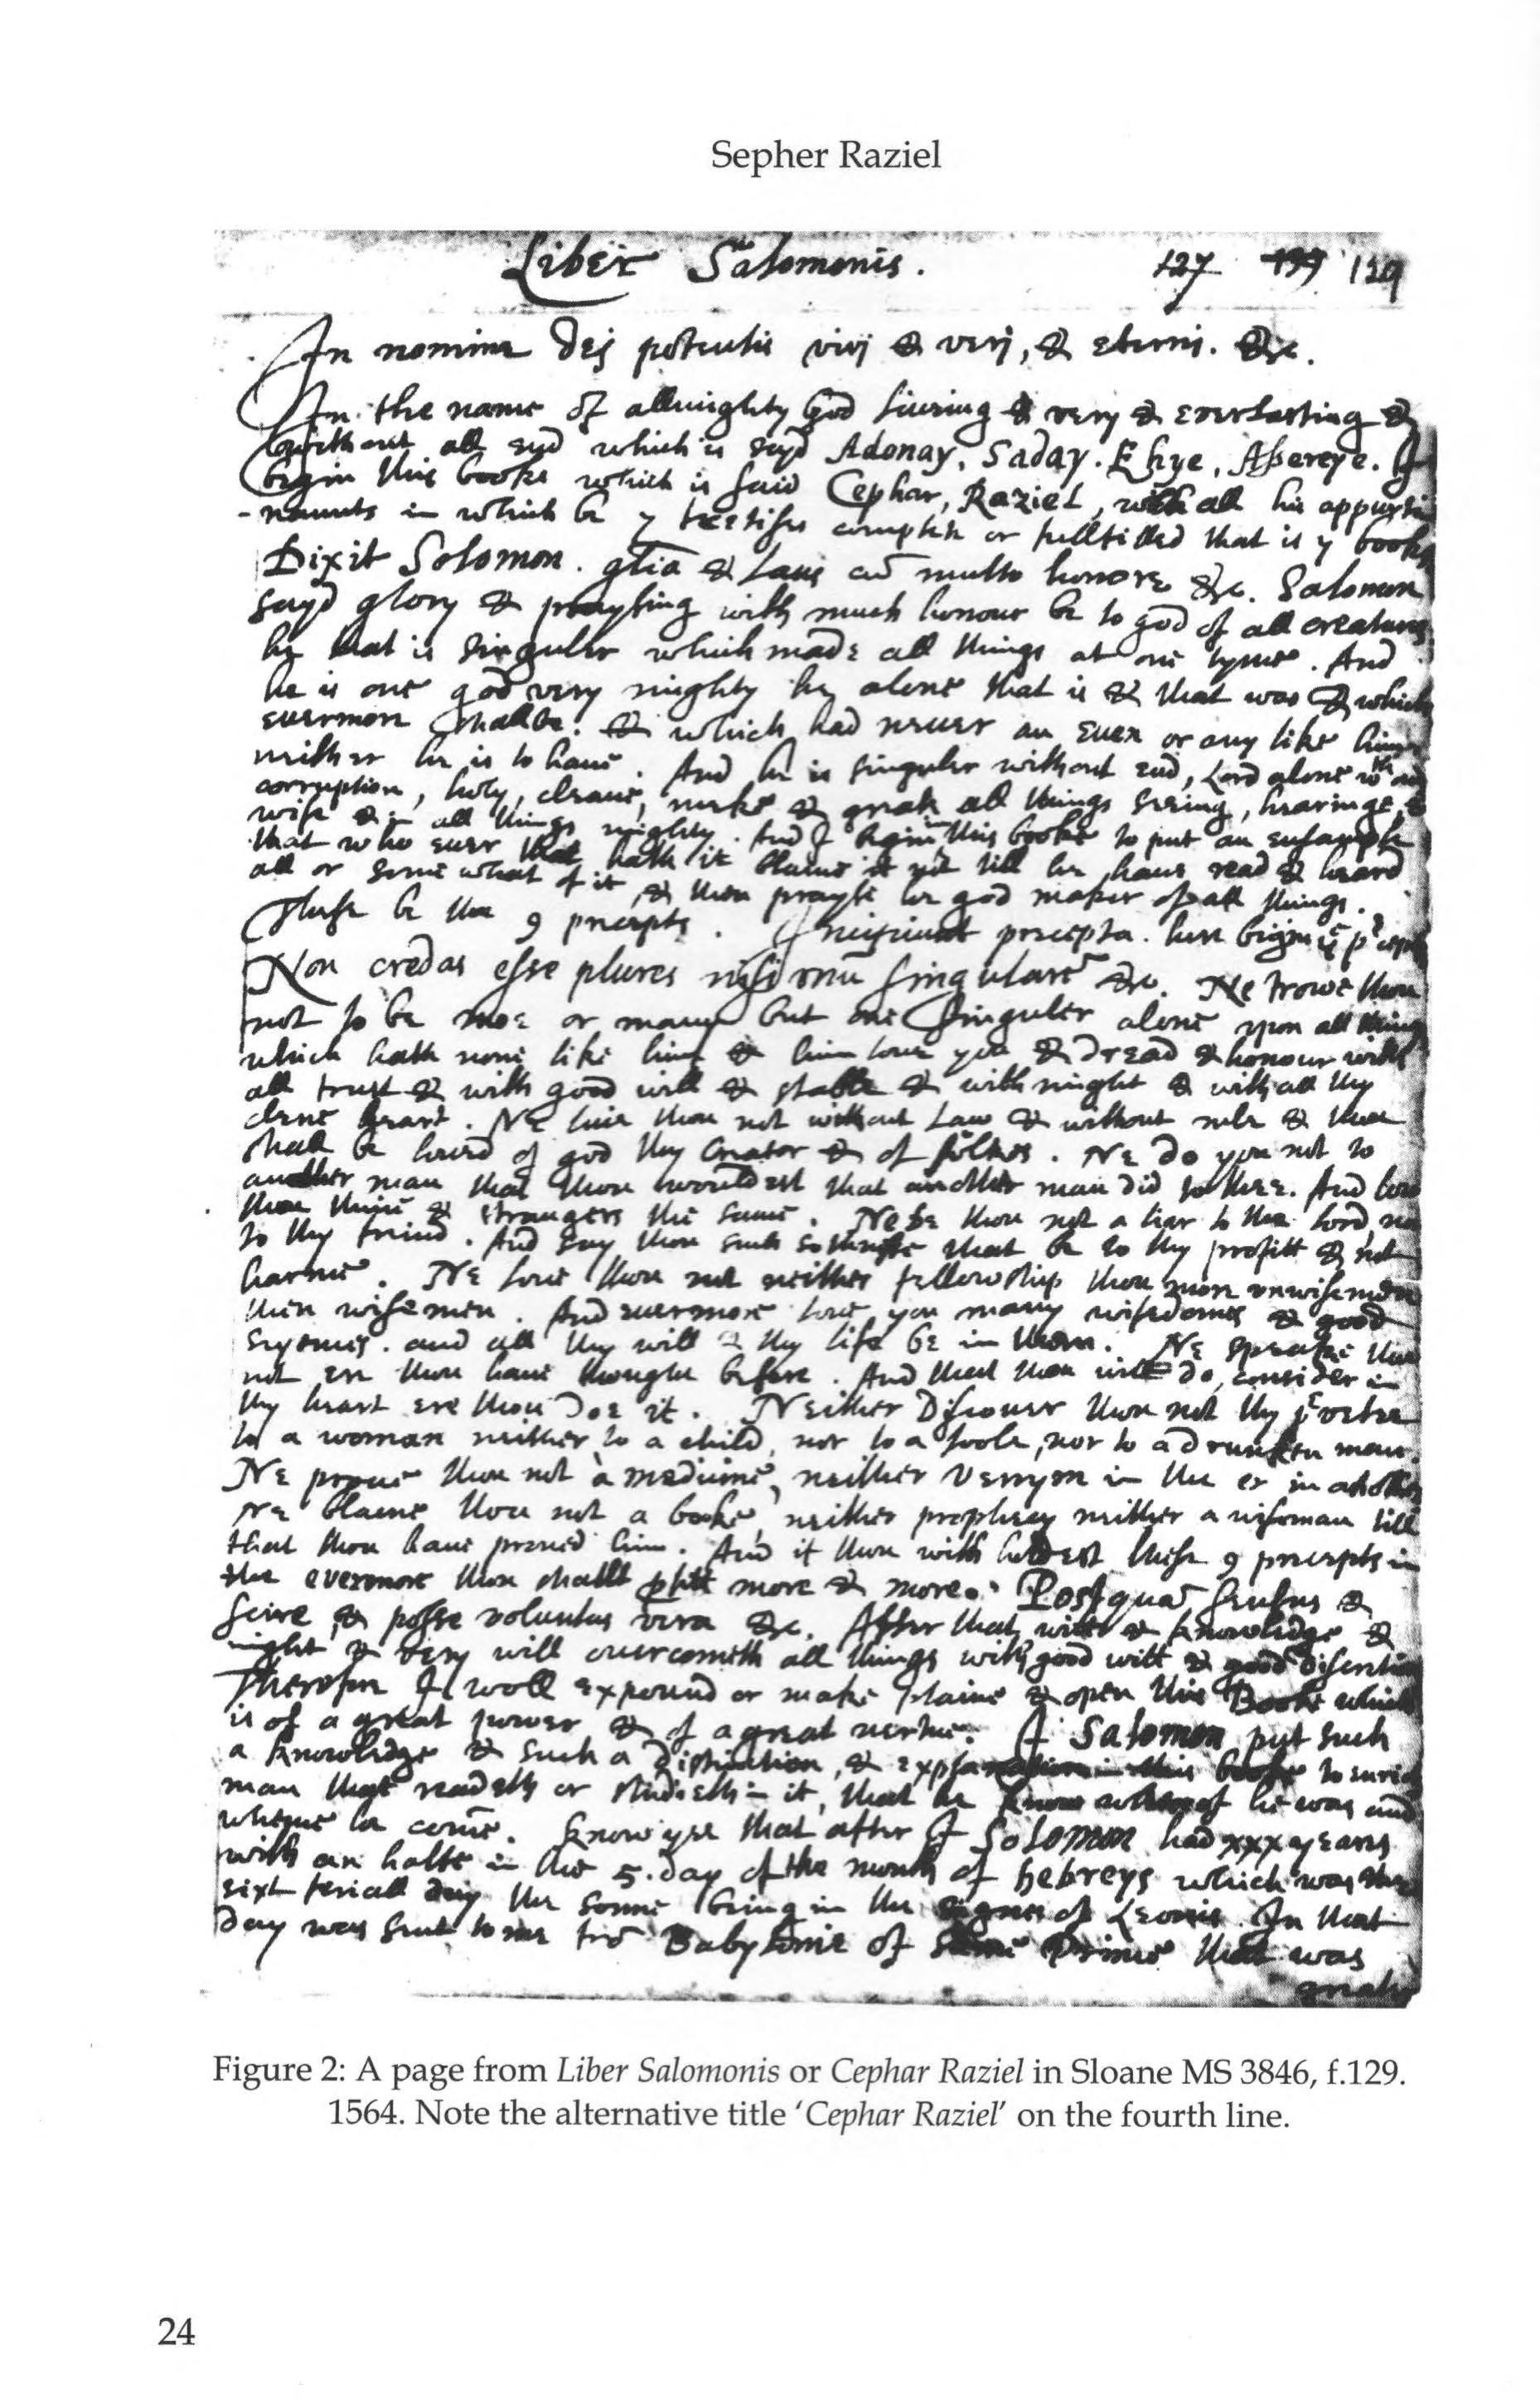 Sepher Raziel
Liber Salomonis. 127 139 129
In nomine Dej potentis vivj & verj, & eternj. &c.
In the name of allmighty God living & very & everlasting &
without all end which is sayd Adonay, Saday. Ehye, Asereye. I
begin this booke which is said Cephar, Raziel, with all his appurti
-naunts in which be y treatises complete or fullfilled that is y books
Dixit Solomon. glia & laus cū multo honore &c. Salomon
sayd glory & praysing with much honour be to god of all creatures
he that is singuler which made all things at one tyme. And
he is one god very mighty he alone that is & that was & which
evermore shalbe. & which had never an even or any like him
neither he is to have. And he is singuler without end, Lord alone wth out
corruption, holy, cleane, meke & greate all things seeing, hearinge, &
wise & in all things mighty. And I begin in this booke to put an ensample
that who ever that hath it blame it not till he have read & heard
all or somewhat of it, & then prayse he god maker of all things.
These be the 9 precepts. Incipiunt precepta. here begin ye
Non credas esse plures nisi unū singularē &c. Ne trowe thou
not to be moe or many but one singuler alone upon all things
which hath none like him & him love you & dread & honour with
all trust & with good will & stable & with might & with all thy
clene heart. Ne live thou not without Law & without rule & thou
shalt be loved of god thy Creator & of folkes. Ne do you not to
another man that thou wouldest that another man did to thee. And love
thou thine & strangers the same. Ne be thou not a liar to the lord, ne
to thy friend. And say thou such that be to thy profitt & not
harme. Ne love thou not neither fellowship thou more unwisemen
then wisemen. And evermore love you many wisedomes & good
. and all thy will & thy life be in them. Ne speake thou
not ere thou have thought before. And that thou wilt do, consider in
thy heart ere thou doe it. Neither discover thou not thy
to a woman neither to a child, nor to a foole, nor to a drunken man.
Ne prove thou not a medicine, neither venym in the or in another
Ne blame thou not a booke, neither prophecy neither a wiseman till
that thou have proved him. And if thou with holdest these 9 precepts in
the evermore thou shallt pfitt more & more. Postquā sensus &
scire & posse voluntas vera &c. After that, witt & knowledge &
might & very will overcometh all things with good witt & good discretion
Therefore I woll expound or make plaine & open this Booke which
is of a great power & of a great vertue. I Salomon put such
a knowledge & such a distinction, & explanation in this booke to every
man that readeth or studieth in it, that he know whereof he was and
whence he come. Know yee that after I Solomon had xxx yeares
with an halfe in the 5. day of the month of hebreys which was the
sixt feriall day the Sonne being in the signe of Leonis. In that
day was sent to me frō Babylonie of some Prince that was
greate
Figure 2: A page from Liber Salomonis or Cephar Raziel in Sloane MS 3846, f.129.
1564. Note the alternative title 'Cephar Raziel' on the fourth line.
24